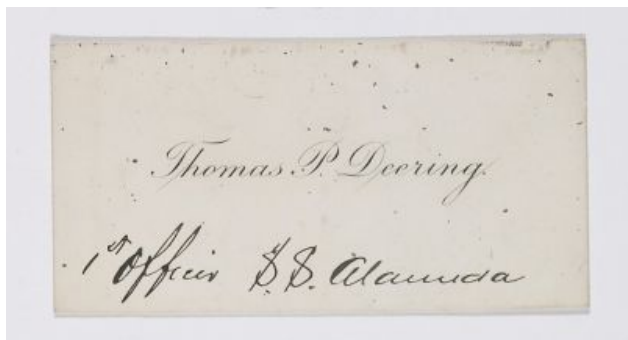 Thomas P. Deering.
1st Officer S.S. Alameda